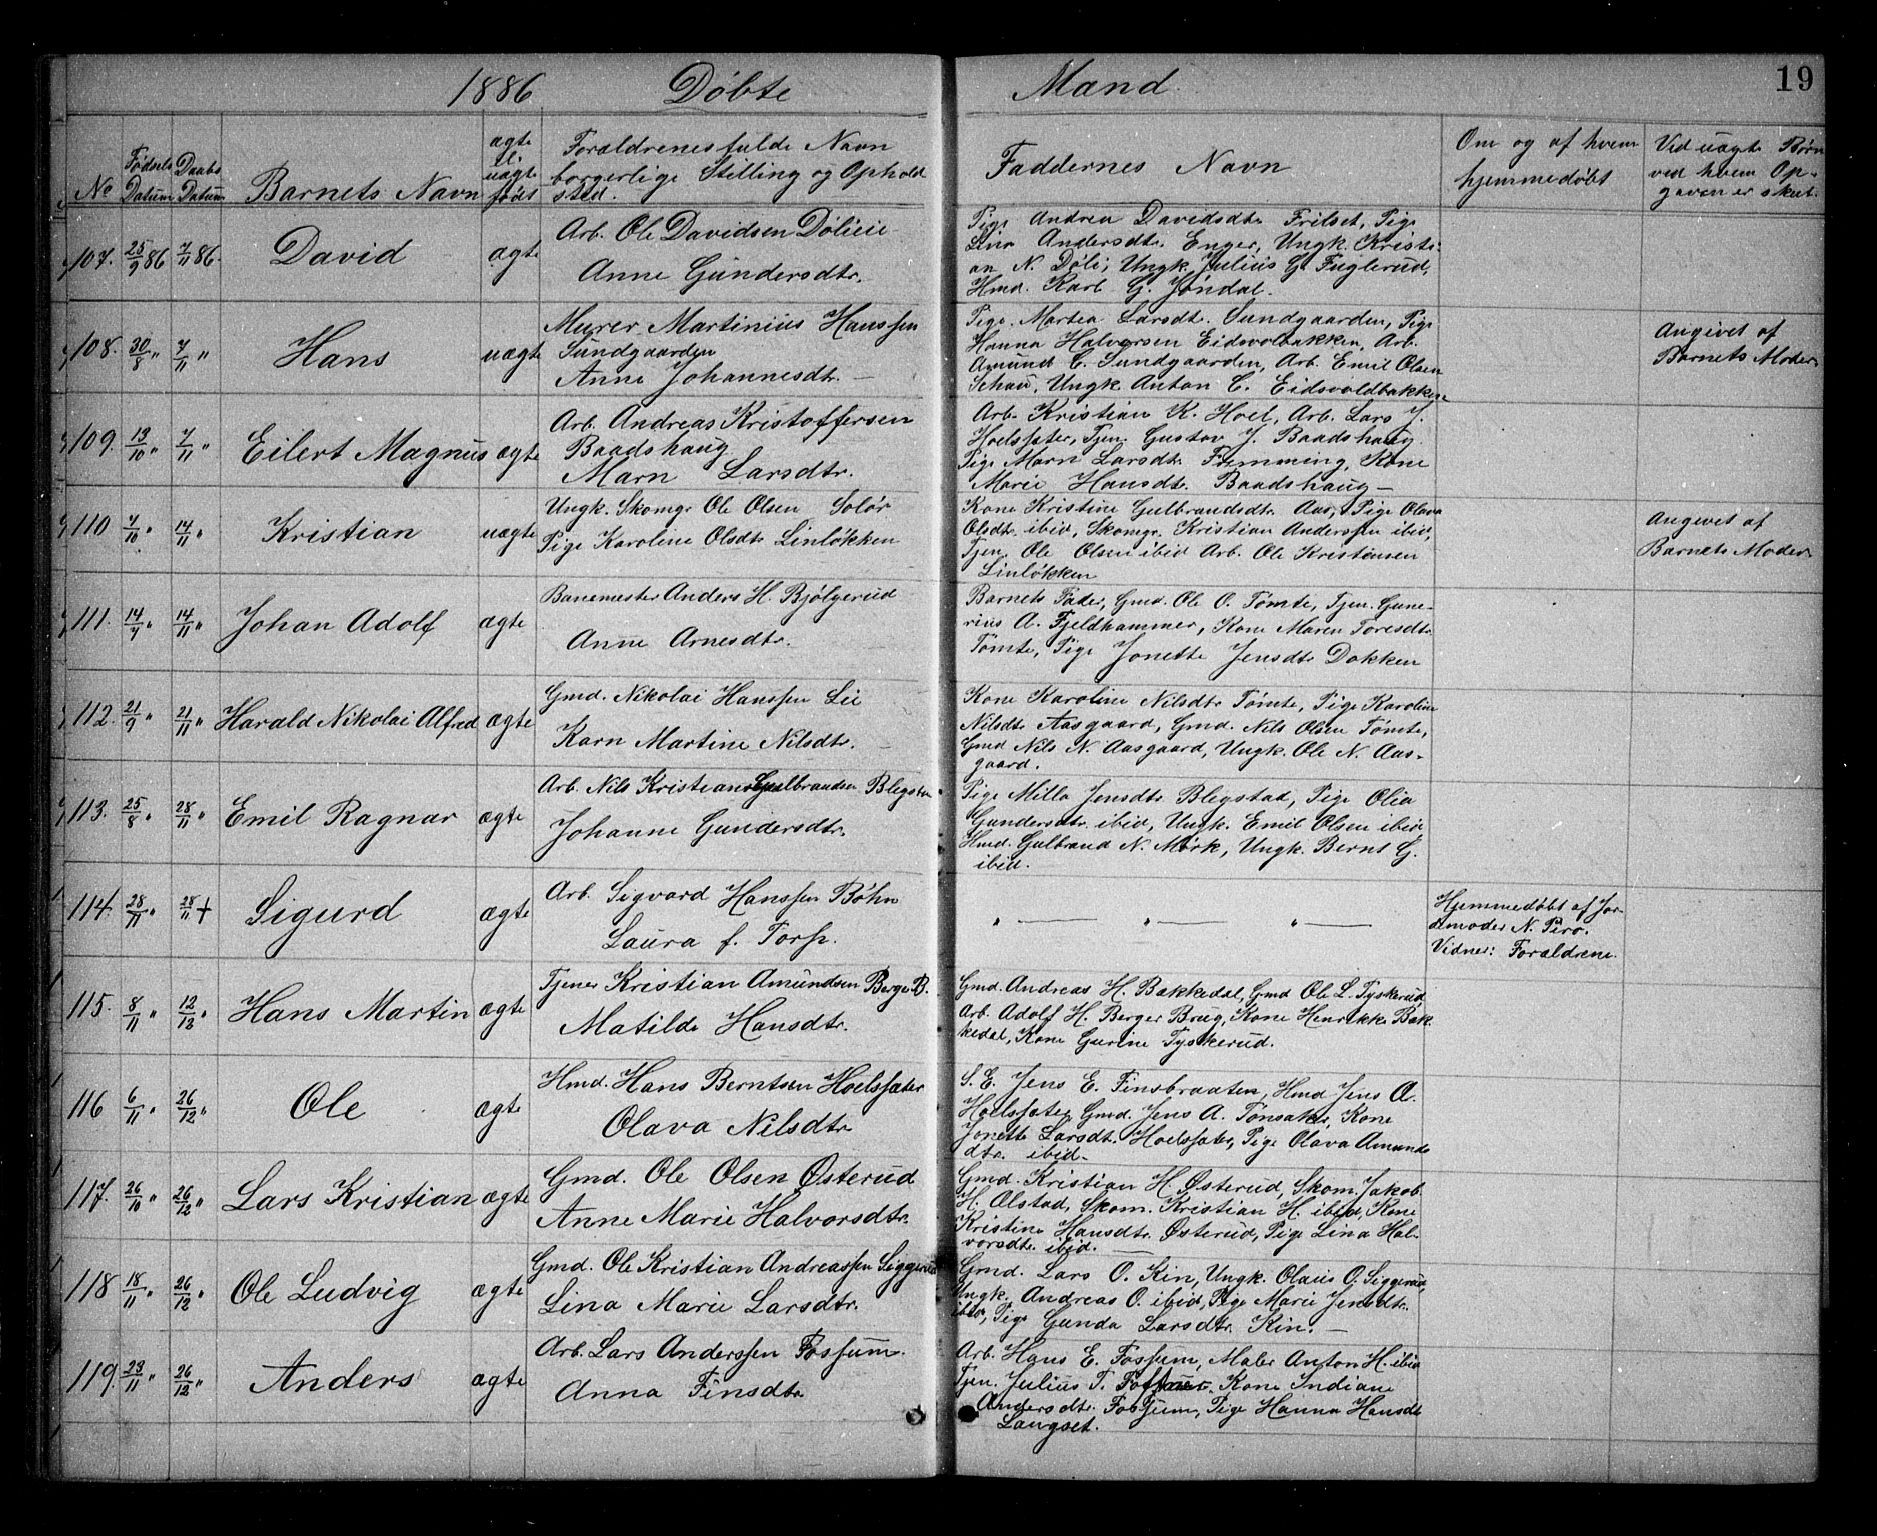 1886 Döbte Mand. 19
No
Fødsels Datum
Daabs Datum
Barnets Navn
ægte el. uægte født
Forældrenes fulde Navn
borgerlige Stilling og Ophold
sted.
Faddernes Navn
Om og af hvem
hjemmedöbt
Ved uægte Børn
ved hvem Op-
gaven er skeet.
107. 25/9 86 7/11 86. David ægte
Arb. Ole Davidsen Dölieie
Anne Gundersdtr.
Pige Andrea Davidsdtr. Frilset, Pige
Lina Andersdtr. Enger, Ungk. Kristi-
an N. Döli, Ungk. Julius G. Fuglerud,
Hmd. Karl G. Jöndal.
108. 30/8 " 7/11 " Hans uægte
Murer Martinius Hanssen
Sundgaarden
Anne Johannesdtr. —
Pige Martea Larsdtr. Sundgaarden, Pige
Hanna Halvorsen Eidsvoldbakken, Arb.
Amund C. Sundgaarden, Arb. Emil Olsen
Schau, Ungk. Anton C. Eidsvoldbakken
Angivet af
Barnets Moder
109. 13/10 " 7/11 " Eilert Magnus ægte
Arb. Andreas Kristoffersen
Baadshaug
Marn Larsdtr.
Arb. Kristian K. Hoel, Arb. Lars J.
Hoelssæter, Tjen. Gustav J. Baadshaug
Pige Marn Larsdtr. Flemming, Kone
Marie Hansdtr. Baadshaug —
110 7/10 " 14/11 " Kristian uægte
Ungk. Skomgr. Ole Olsen Solör
Pige Karoline Olsdtr. Linløkken
Kone Kristine Gulbrandsdtr. Aas, Pige Olava
Olsdtr. ibid, Skomgr. Kristian Anderssen ibid,
Tjen. Ole Olsen ibid Arb. Ole Kristensen
Linløkken
Angivet af
Barnets Moder
111. 14/9 " 14/11 " Johan Adolf ægte
Banemester Anders H. Bjölgerud
Anne Arnesdtr.
Barnets Fader, Gmd. Ole O. Tömte, Tjen. Gune-
rius A. Fjeldhammer, Kone Maren Toresdtr.
Tömte, Pige Jonette Jensdtr. Dokken
112. 21/9 " 21/11 " Harald Nikolai Alfred ægte
Gmd. Nikolai Hanssen Lie
Karn Martine Nilsdtr.
Kone Karoline Nilsdtr Tømte, Pige Karoline
Nilsdtr. Aasgaard, Gmd. Nils Olsen Tömte,
Gmd Nils N. Aasgaard, Ungk. Ole N. Aas-
gaard.
113. 25/8 " 28/11 " Emil Ragnar ægte
Arb. Nils Kristian Gulbrandsen Blegstad
Johanne Gundersdtr.
Pige Milla Jensdtr. Blegstad, Pige Olia
Gundersdtr. ibid, Ungk. Emil Olsen ibid
Hmd. Gulbrand N. Mörk, Ungk. Bernt G.
ibid.
114. 28/11 " 28/11 + Sigurd ægte
Arb. Sigvard Hanssen Böhn
Laura f. Torp.
" — " — " —
Hjemmedöbt af Jor-
demoder N. Piro.
Vidner: Forældrene.
115. 8/11 " 12/12 " Hans Martin ægte
Tjener Kristian Amundsen Berger B.
Matilde Hansdtr.
Gmd. Andreas H. Bakkedal, Gmd Ole L. Tyskerud
Arb. Adolf H. Berger Brug, Kone Henrikke Bak-
kedal, Kone Gurine Tyskerud.
116 6/11 " 26/12 " Ole ægte
Hmd. Hans Berntsen Hoelssæter
Olava Nilsdtr
S. E. Jens E. Finsbraaten, Hmd Jens A.
Hoelssæter, Gmd. Jens A. Tönsaker, Kone
Jonette Larsdtr. Hoelssæter, Pige Olava Amunds
dtr. ibid.
117. 26/10 " 26/12 " Lars Kristian ægte
Gmd. Ole Olsen Østerud
Anne Marie Halvorsdtr.
Gmd. Kristian H. Østerud, Skom. Jakob
H. Olstad, Skom. Kristian H. ibid, Kone
Kristine Hansdtr. Østerud, Pige Lina Hal-
vorsdtr. ibid. —
118 18/11 " 26/12 " Ole Ludvig ægte
Gmd. Ole Kristian Andreassen Siggerud
Lina Marie Larsdtr.
Gmd. Lars O. Kin, Ungk. Olaus O. Siggerud,
Ungk. Andreas O. ibid, Pige Marie Jensdtr.
ibid, Pige Gunda Larsdtr. Kin. —
119. 23/11 " 26/12 " Anders ægte
Arb. Lars Anderssen Fossum.
Anna Finsdtr.
Arb. Hans E. Fossum, Maler Anton H. ibid
Tjen. Julius T. Kone Indiane
Andersdtr. Fossum, Pige Hanna Hansdtr
Langset.